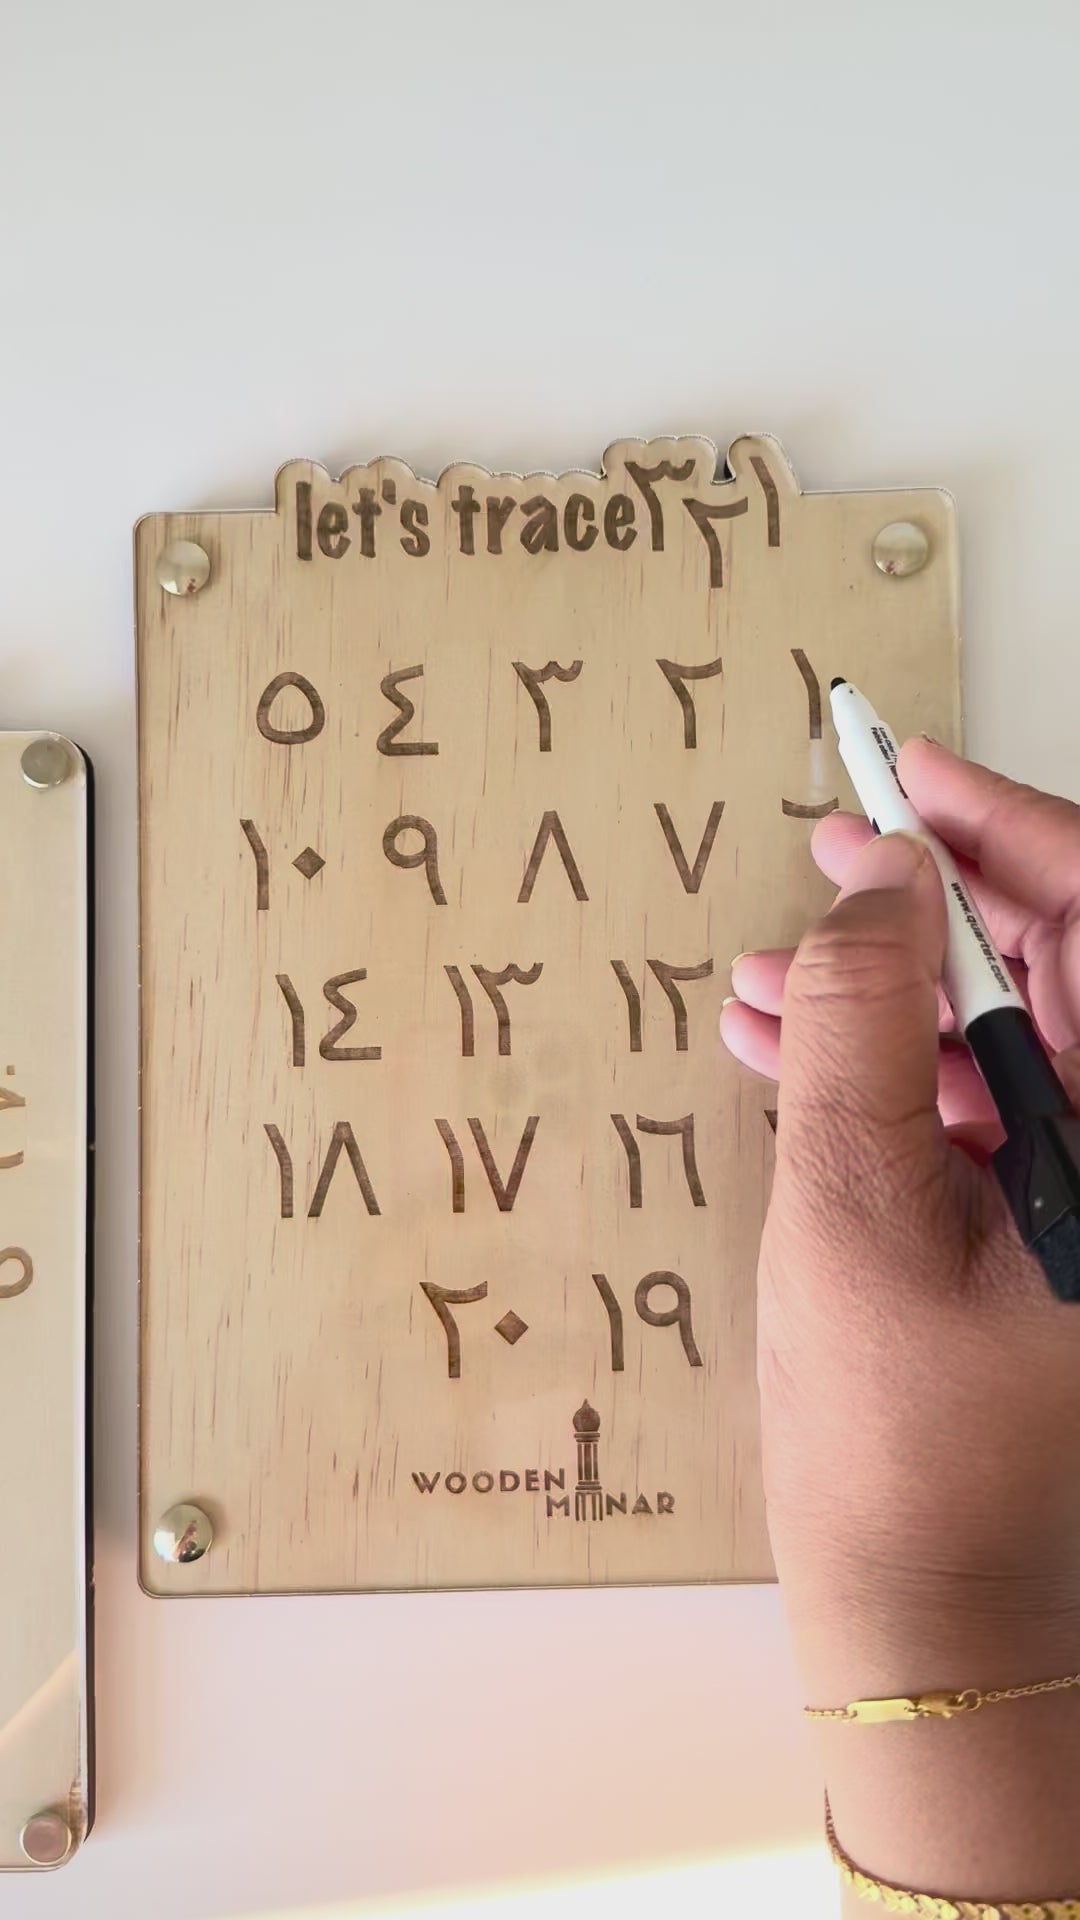 let's trace ١ ٢ ٣
١ ٢ ٣ ٤ ٥
٧ ٨ ٩ ١٠
١٢ ١٣ ١٤
١٦ ١٧ ١٨
١٩ ٢٠
WOODEN
MINAR
www.quartet.com